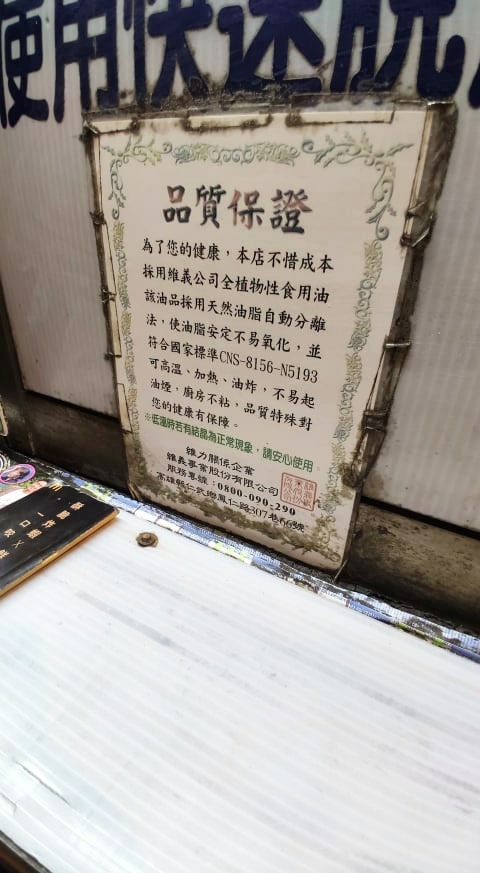 使用快速脫
品質保證
為了您的健康，本店不惜成本
採用維義公司全植物性食用油
該油品採用天然油脂自動分離
法，使油脂安定不易氧化，並
符合國家標準CNS-8156-N5193
可高溫、加熱、油炸，不易起
油煙，廚房不粘，品質特殊對
您的健康有保障。
※低溫時若有結晶為正常現象，請安心使用。
維力關係企業
維義事業股份有限公司
服務專線：0800-090-290
高雄縣仁武鄉鳳仁路307巷66號